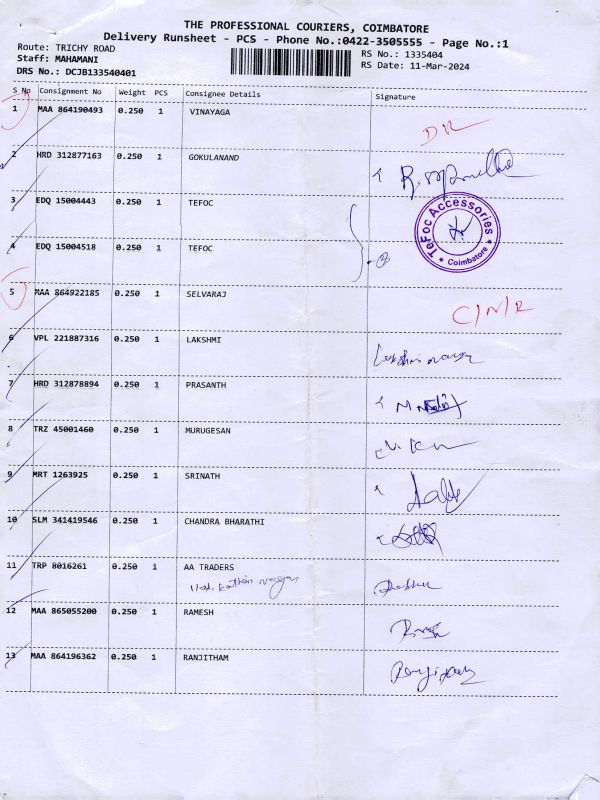 THE PROFESSIONAL COURIERS, COIMBATORE
Delivery Runsheet - PCS - Phone No.:0422-3505555 - Page No.:1
Route: TRICHY ROAD
Staff: MAHAMANI
DRS No.: DCJB133540401
RS No.: 1335404
RS Date: 11-Mar-2024
S No Consignment No Weight PCS Consignee Details Signature
1 MAA 864190493 0.250 1 VINAYAGA
DR
2 HRD 312877163 0.250 1 GOKULANAND
3 EDQ 15004443 0.250 1 TEFOC
TeFoc Accessories
* Coimbatore *
4 EDQ 15004518 0.250 1 TEFOC
5 MAA 864922185 0.250 1 SELVARAJ
C/N/R
6 VPL 221887316 0.250 1 LAKSHMI
7 HRD 312878894 0.250 1 PRASANTH
8 TRZ 45001460 0.250 1 MURUGESAN
9 MRT 1263925 0.250 1 SRINATH
10 SLM 341419546 0.250 1 CHANDRA BHARATHI
11 TRP 8016261 0.250 1 AA TRADERS
12 MAA 865055200 0.250 1 RAMESH
13 MAA 864196362 0.250 1 RANJITHAM